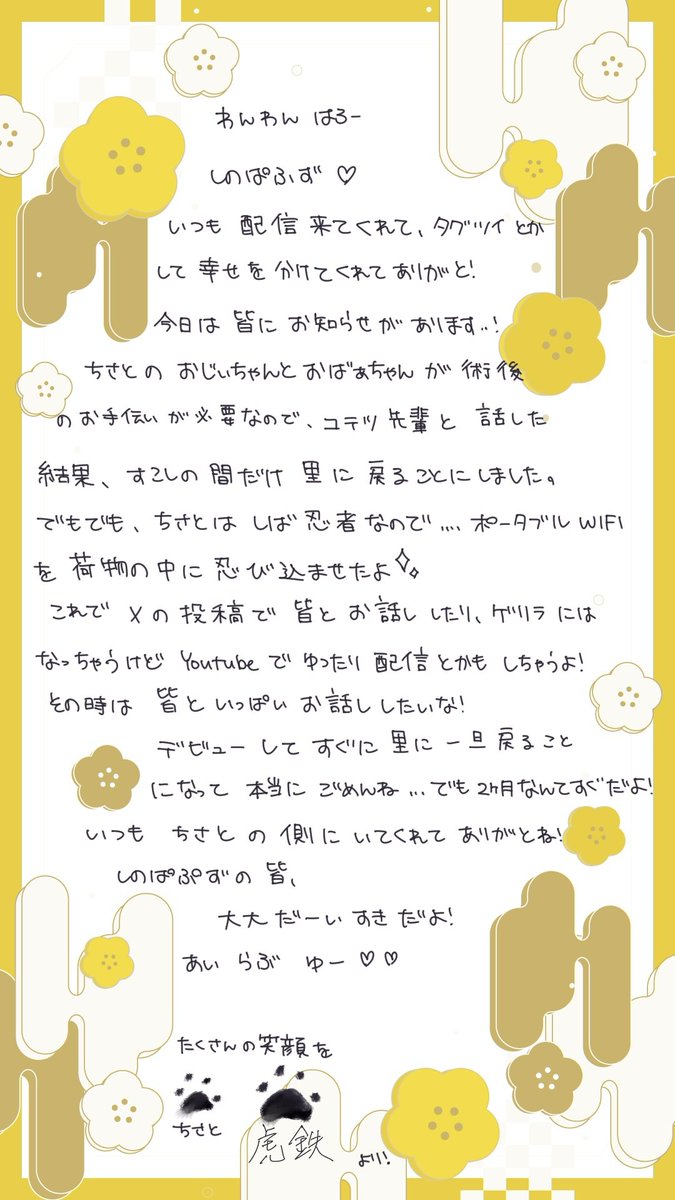 わんわん はろー
しのぱふず♡
いつも 配信 来てくれて、タグツイとか
して 幸せを 分けてくれて ありがと!
今日は 皆に お知らせが あります..!
ちさとの おじいちゃんと おばあちゃん が 術後
のお手伝いが必要なので、コテツ先輩と 話した
結果、すこしの間だけ 里に 戻ることにしました。
でもでも、ちさとは しば忍者なので.... ポータブル WIFI
を 荷物の中に 忍び込ませたよ✧
これで Xの投稿で 皆と お話ししたり、ゲリラには
なっちゃうけど Youtubeで ゆったり 配信とかも しちゃうよ!
その時は 皆と いっぱい お話ししたいな!
デビュー して すぐに 里に 一旦 戻ること
になって 本当に ごめんね...でも 2ヶ月なんてすぐだよ!
いつも ちさとの 側に いてくれて ありがとね!
しのぱぷずの 皆、
大大 だーい すき だよ!
あい らぶ ゆー♡♡
たくさんの笑顔を
ちさと 虎鉄 より!